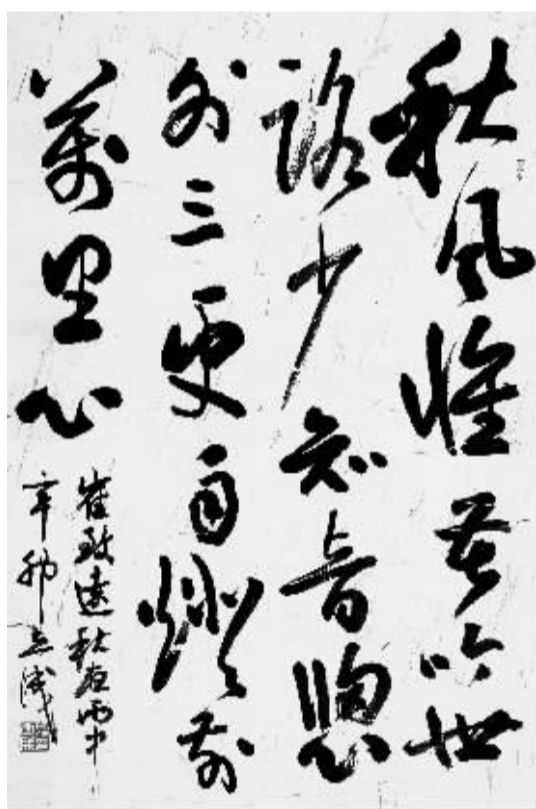 秋風惟苦吟世
路少知音牕
外三更雨燈前
萬里心
崔致遠秋夜雨中
辛卯